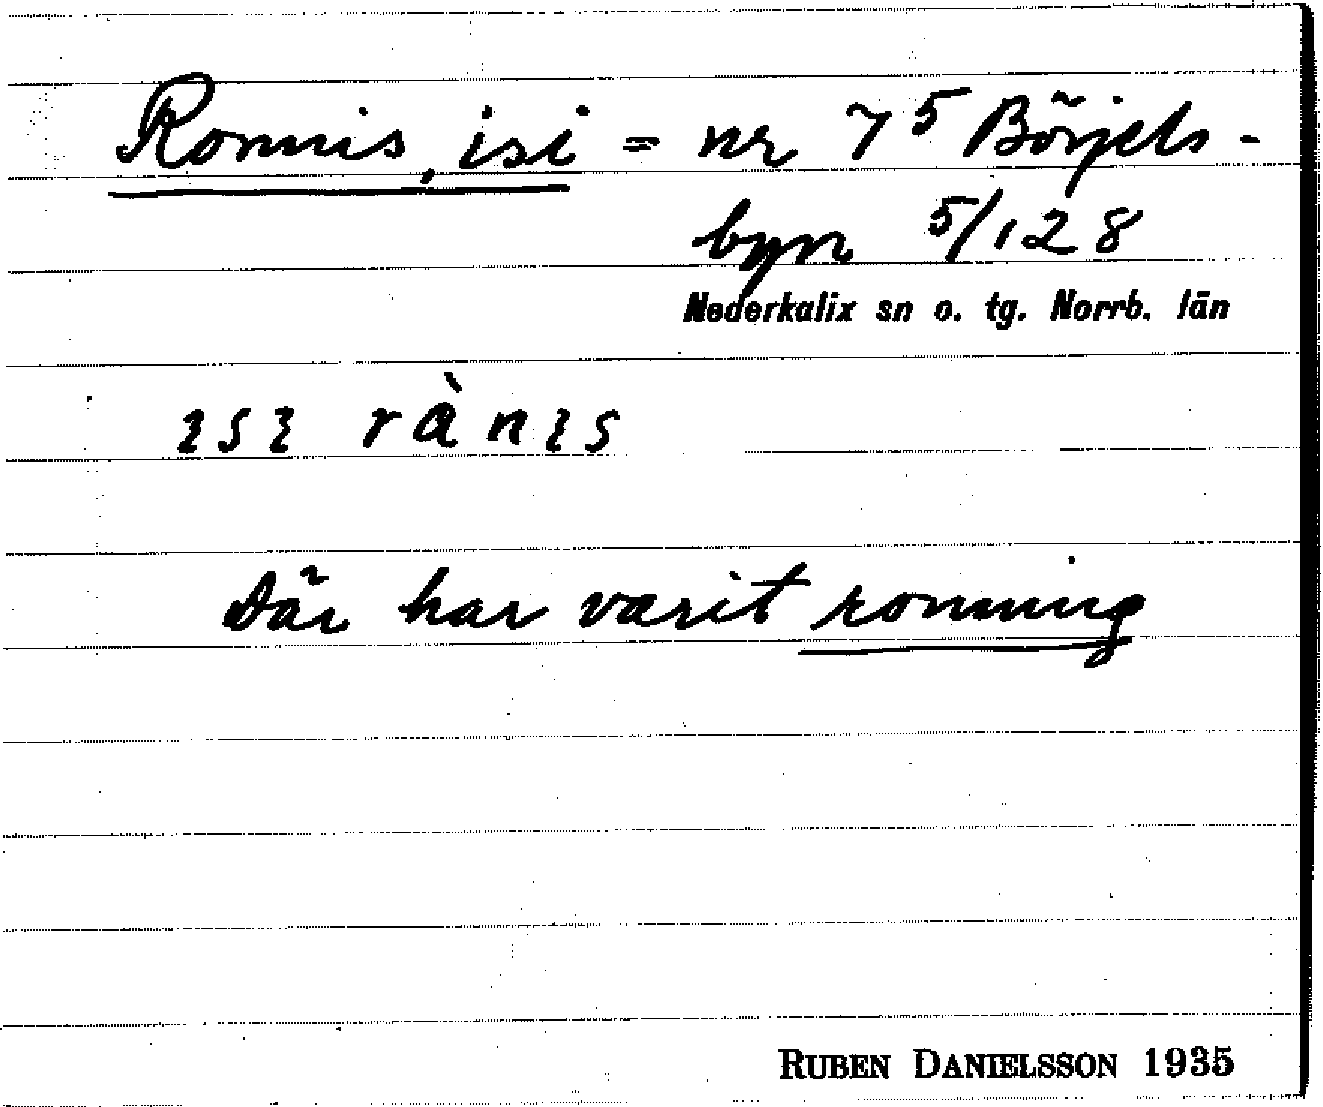 Ronnis, isi = nr 7⁵ Börjels-
byn 5/128
Nederkalix sn o. tg. Norrb. län
ɩsɩ rànɩs
Där har varit ronning
RUBEN DANIELSSON 1935